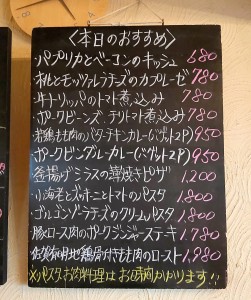 〈本日のおすすめ〉
パプリカとベーコンのキッシュ 680
桃とモッツァレラチーズのカプレーゼ 780
牛トリッパのトマト煮込み 780
ポークビーンズ、テリトマト煮込み 780
若鶏もも肉のバターチキンカレー(バゲット2P) 950
ポークビンダルカレー(バゲット2P) 950
釜揚げシラスの葉焼きピザ 1,200
小海老とズッキーニとトマトのパスタ 1,800
ゴルゴンゾーラチーズのクリームパスタ 1,800
豚ロース肉のポークジンジャーステーキ 1,780
地鶏骨付きもも肉のロースト 1,980
※パスタ、お肉料理はお時間かかります!!